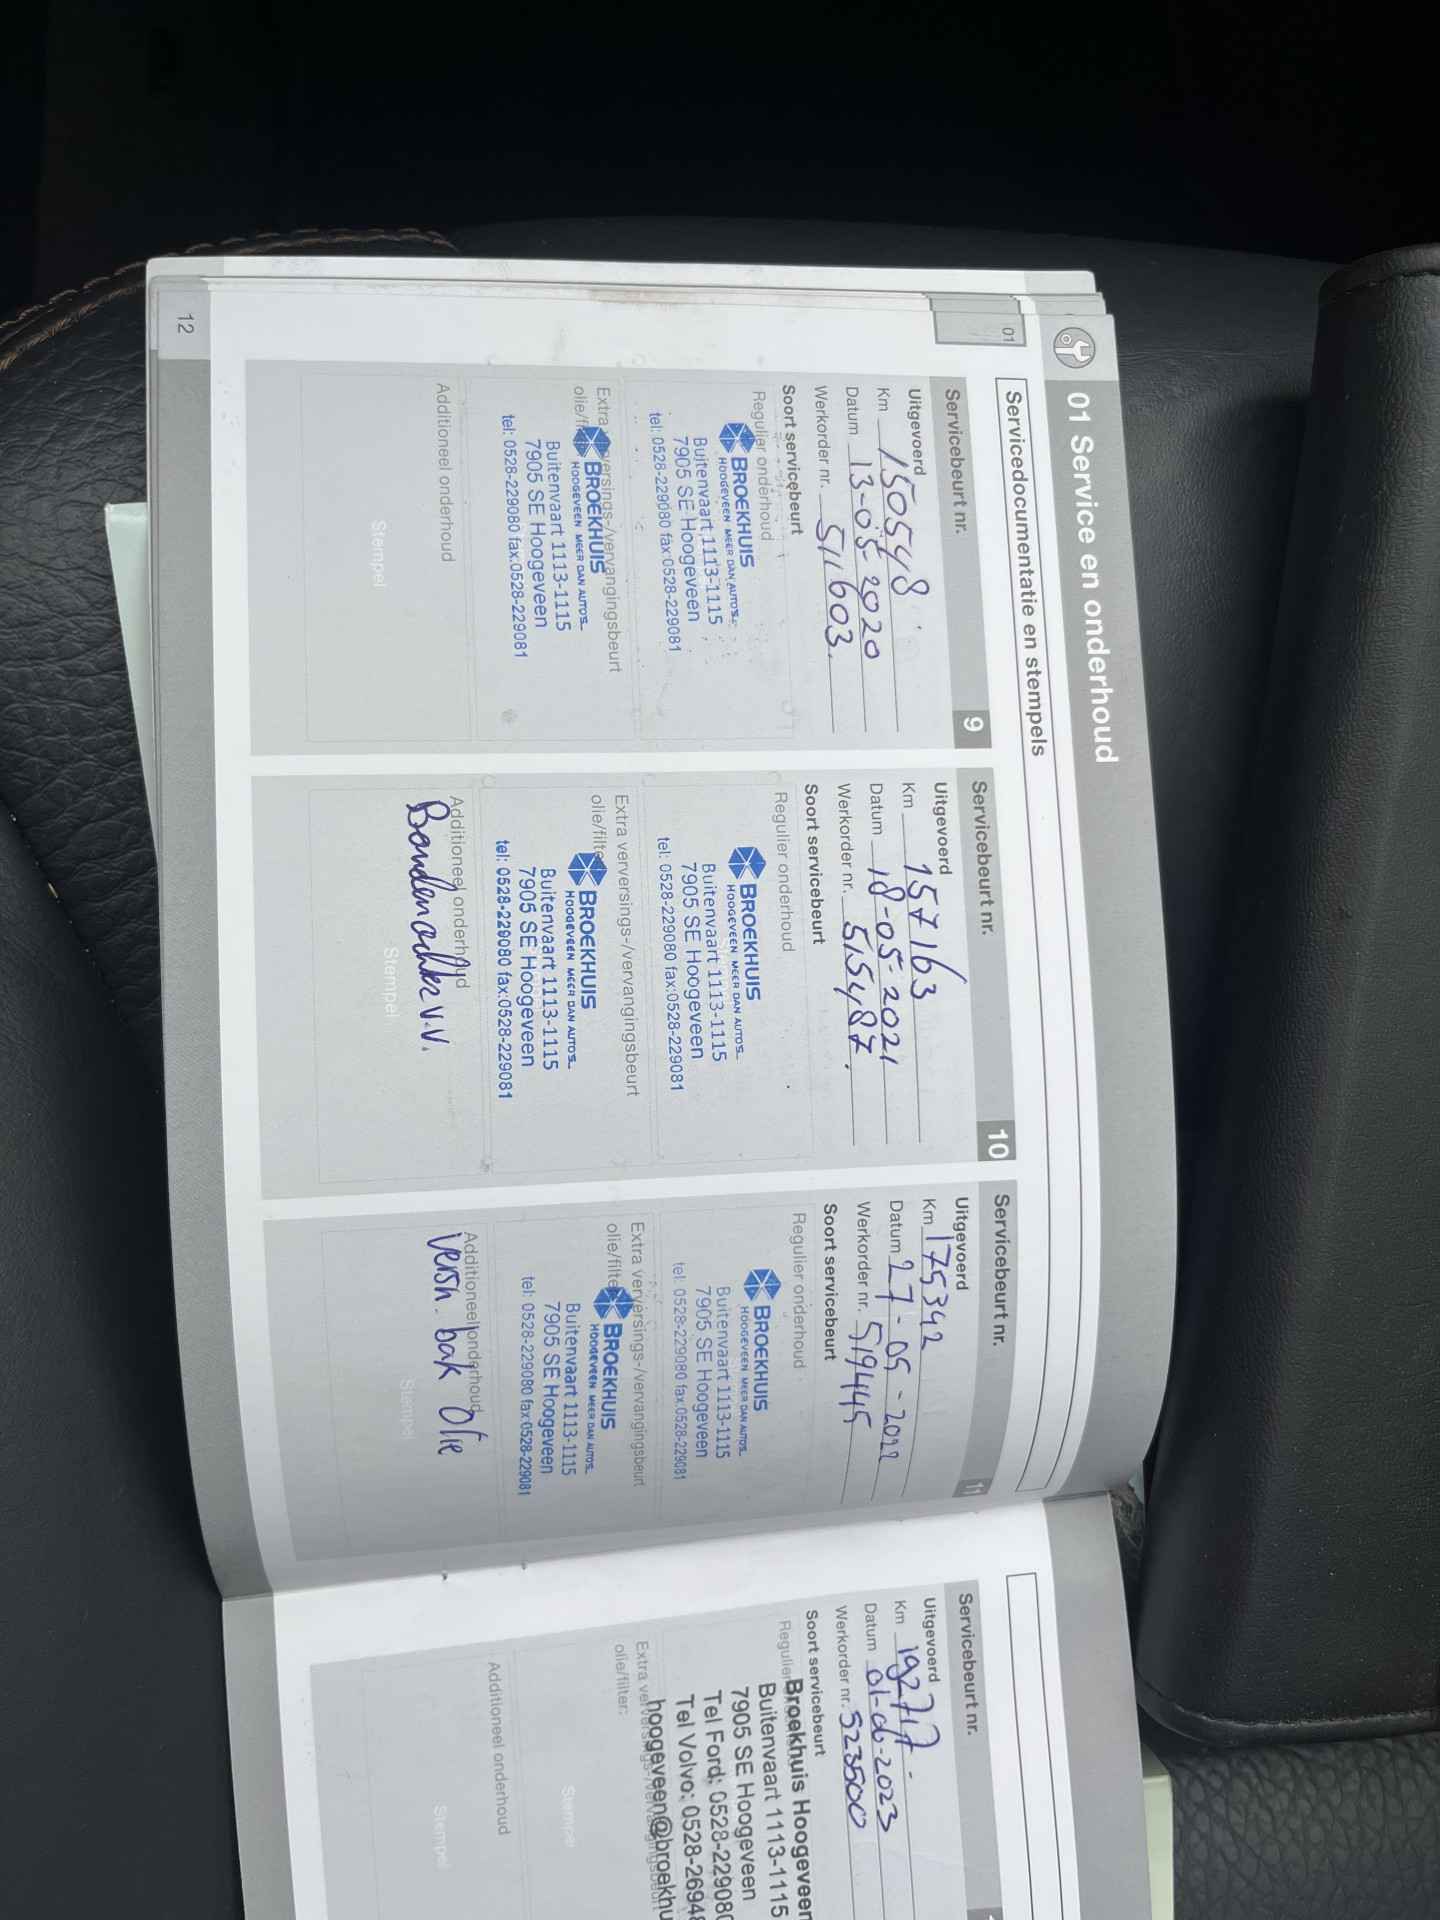 01 Service en onderhoud
01
Servicedocumentatie en stempels
Servicebeurt nr. 9
Uitgevoerd
Km 150548
Datum 13-05-2020
Werkorder nr. 511603.
Soort servicebeurt
Regulier onderhoud
BROEKHUIS
HOOGEVEEN MEER DAN AUTO'S...
Buitenvaart 1113-1115
7905 SE Hoogeveen
tel: 0528-229080 fax:0528-229081
Extra verversings-/vervangingsbeurt
BROEKHUIS
HOOGEVEEN MEER DAN AUTO'S...
Buitenvaart 1113-1115
7905 SE Hoogeveen
tel: 0528-229080 fax:0528-229081
Additioneel onderhoud
Stempel
Servicebeurt nr. 10
Uitgevoerd
Km 157163
Datum 18-05-2021
Werkorder nr. 515487.
Soort servicebeurt
Regulier onderhoud
BROEKHUIS
HOOGEVEEN MEER DAN AUTO'S...
Buitenvaart 1113-1115
7905 SE Hoogeveen
tel: 0528-229080 fax:0528-229081
Extra verversings-/vervangingsbeurt
olie/filter
BROEKHUIS
HOOGEVEEN MEER DAN AUTO'S...
Buitenvaart 1113-1115
7905 SE Hoogeveen
tel: 0528-229080 fax:0528-229081
Additioneel onderhoud
Banden achter v.v.
Stempel
Servicebeurt nr. 11
Uitgevoerd
Km 175342
Datum 27-05-2022
Werkorder nr. 519445
Soort servicebeurt
Regulier onderhoud
BROEKHUIS
HOOGEVEEN MEER DAN AUTO'S...
Buitenvaart 1113-1115
7905 SE Hoogeveen
tel: 0528-229080 fax:0528-229081
Extra verversings-/vervangingsbeurt
olie/filte
BROEKHUIS
HOOGEVEEN MEER DAN AUTO'S...
Buitenvaart 1113-1115
7905 SE Hoogeveen
tel: 0528-229080 fax:0528-229081
Additioneel onderhoud
versn. bak olie
Stempel
12
Servicebeurt nr.
Uitgevoerd
Km 192717-
Datum 01-06-2023
Werkorder nr. 523500
Soort servicebeurt
Regulier
Broekhuis Hoogeveen
Buitenvaart 1113-1115
7905 SE Hoogeveen
Tel Ford: 0528-229080
Tel Volvo: 0528-2694
hoogeveen@broekhu
Extra verversings-/vervangingsbeurt
olie/filter:
Stempel
Additioneel onderhoud
Stempel